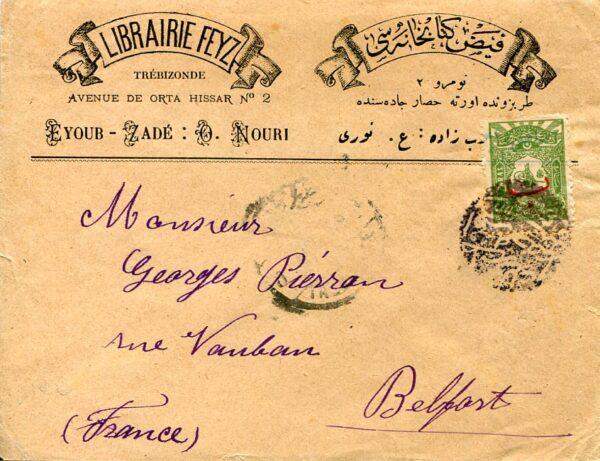 LIBRAIRIE FEYZI
TRÉBIZONDE
AVENUE DE ORTA HISSAR Nº 2
EYOUB - ZADÉ : O. NOURI
فيض كتابخانه سى
نومرو ٢
طربزونده اورته حصار جاده سنده
زاده : ع. نورى
Monsieur
Georges Piérron
rue Vauban
Belfort
(France)